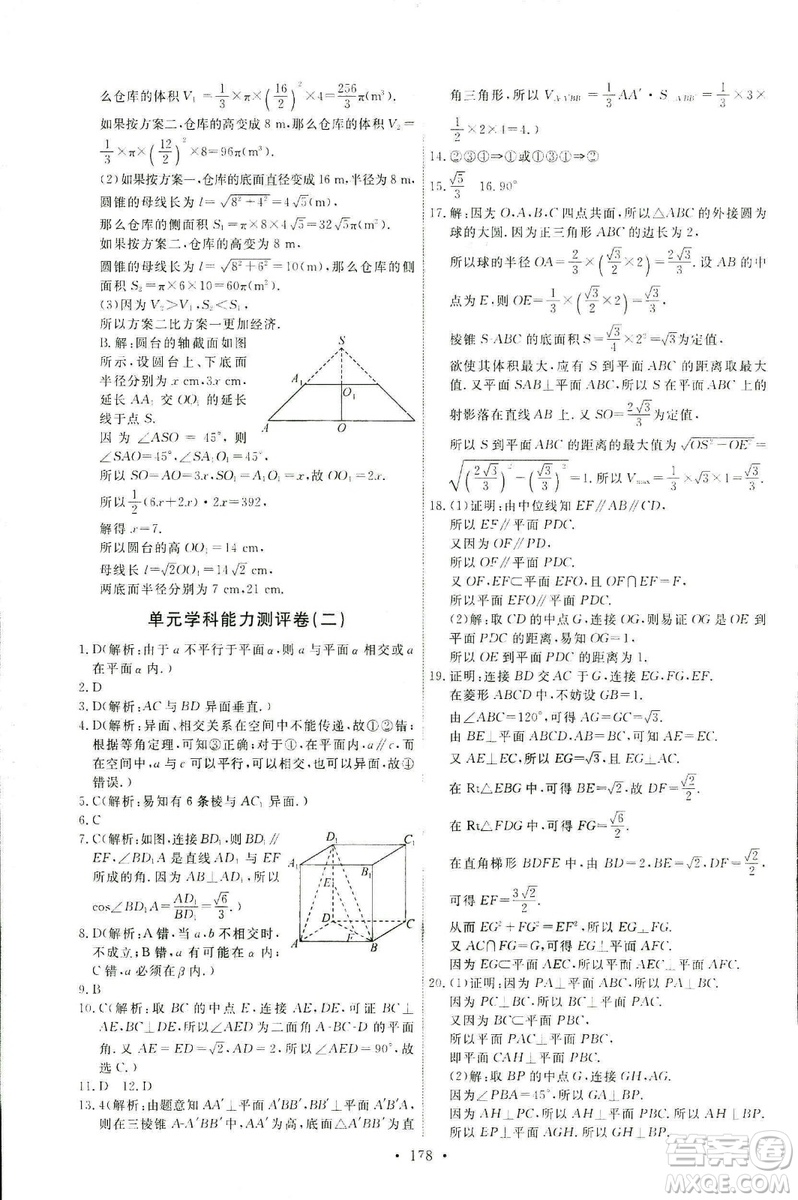 么仓库的体积 V₁ = 1/3 × π × (16/2)² × 4 = 256/3 π(m³).
如果按方案二,仓库的高变成 8 m,那么仓库的体积 V₂ =
1/3 × π × (12/2)² × 8 = 96π(m³).
(2)如果按方案一,仓库的底面直径变成 16 m,半径为 8 m,
圆锥的母线长为 l = √(8²+4²) = 4√5(m),
那么仓库的侧面积 S₁ = π×8×4√5 = 32√5π(m²).
如果按方案二,仓库的高变为 8 m,
圆锥的母线长为 l = √(8²+6²) = 10(m),则仓库的侧
面积 S₂ = π×6×10 = 60π(m²).
(3)因为 V₂ > V₁,S₂ < S₁,
所以方案二比方案一更加经济.
B.解:圆台的轴截面如图
所示,设圆台上、下底面
半径分别为 x cm,3x cm,
延长 AA₁ 交 OO₁ 的延长
线于点 S.
因为 ∠ASO = 45°,则
∠SAO = 45°,∠SA₁O₁ = 45°.
所以 SO=AO=3x,SO₁=A₁O₁=x,故 OO₁=2x.
所以 1/2 (6x+2x)·2x=392,
解得 x=7.
所以圆台的高 OO₁=14 cm,
母线长 l=√2OO₁=14√2 cm,
两底面半径分别为 7 cm,21 cm.
S
A₁
O₁
A
O
单元学科能力测评卷(二)
1. D(解析:由于 a 不平行于平面 α,则 a 与平面 α 相交或
a 在平面 α 内.)
2. D
3. D(解析:AC 与 BD 异面垂直.)
4. D(解析:异面、相交关系在空间中不能传递,故①②错;
根据等角定理,可知③正确;对于④,在平面内,a∥c,而
在空间中,a 与 c 可以平行,可以相交,也可以异面,故④
错误.)
5. C(解析:易知有 6 条棱与 AC₁ 异面.)
6. C
7. C(解析:如图,连接 BD₁,BD₁∥
EF,∠BD₁A 是直线 EF 与 AD₁
所成的角.
cos∠BD₁A = AD₁/BD₁ = √6/3.)
D₁
C₁
A₁
B₁
E
D
C
F
A
B
8. D(解析:A 错,当 α,b 不相交时,
不成立;B 错,α,β 可能相交;
C 错,a 必须在 β 内.)
9. B
10. C(解析:取 BC 的中点 E,连接 AE,DE,可证 BC⊥
AE,BC⊥DE,所以∠AED 为二面角 A-BC-D 的平面
角.又 AE=ED=√2,AD=2,所以∠AED=90°,故
选 C.)
11. D 12. D
13. 4(解析:由题意知 AA′⊥平面 A′BB′,BB′⊥平面 A′B′A,
则在三棱锥 A-A′BB′中,△A′BB′为以∠A′B′B 为直
角三角形,所以 V = 1/3 AA′·S = 1/3 ×3×
1/2 ×2×4=4.)
14. ②③④⇒①或①③④⇒②
15. √5/3 16. 90°
17. 解:因为 O,A,B,C 四点共面,所以△ABC 的外接圆为
球的大圆.因为正三角形 ABC 的边长为 2,
所以球的半径 OA = 2/3 × (√3/2 × 2) = 2√3/3.设 AB 的中
点为 E,则 OE = 1/3 × (√3/2 × 2) = √3/3.
棱锥 S-ABC 的底面积 S = √3/4 × 2² = √3为定值,
欲使其体积最大,应有 S 到平面 ABC 的距离取最大
值.又平面 SAB⊥平面 ABC,所以 S 在平面 ABC 上的
射影落在直线 AB 上.又 SO = 2√3/3 为定值,
所以 S 到平面 ABC 的距离的最大值为 √(OS²−OE²) =
√((2√3/3)²−(√3/3)²) = 1.所以 Vmax = 1/3 × √3 × 1 = √3/3.
18. (1)证明:由中位线知 EF∥AB∥CD,
所以 EF∥平面 PDC.
又因为 OF∥PD,
所以 OF∥平面 PDC.
又 OF,EF⊂平面 EFO,且 OF∩EF=F,
所以平面 EFO∥平面 PDC.
(2)解:取 CD 的中点 G,连接 OG,易证 OG⊥平面
PCD,OG 等于 OE 到平面 PDC 的距离,易知 OG=1,
所以 OE 到平面 PDC 的距离为 1.
19. 证明:连接 BD 交 AC 于 G,连接 EG,FG,EF.
在菱形 ABCD 中,不妨设 GB=1.
由∠ABC=120°,可得 AG=GC=√3.
由 BE⊥平面 ABCD,AB=BC,可知 AE=EC.
又 AE⊥EC,所以 EG=√3,且 EG⊥AC.
在 Rt△EBG 中,可得 BE=√2,故 DF=√2/2.
在 Rt△FDG 中,可得 FG=√6/2.
在直角梯形 BDFE 中,由 BD=2,BE=√2,DF=√2/2,
可得 EF=3√2/2.
从而 EG²+FG²=EF²,所以 EG⊥FG.
又 AC∩FG=G,可得 EG⊥平面 AFC.
因为 EG⊂平面 AEC,所以平面 AEC⊥平面 AFC.
20. (1)证明:因为 PA⊥BC,AC⊥BC,
又因为 PC⊥BC,所以 BC⊥平面 PAC.
又因为 BC⊂平面 PBC,
所以平面 PAC⊥平面 PBC,
即平面 CAH⊥平面 PBC.
(2)证明:取 BP 的中点 G,连接 GA,GH,
因为∠PBA=45°,所以 GA⊥BP.
因为 AH⊥PC,所以 AH⊥平面 PBC.
所以 AH⊥PB,又因为 GA∩AH=A,
所以 BP⊥平面 AGH,所以 BP⊥GH.
178
答案圈